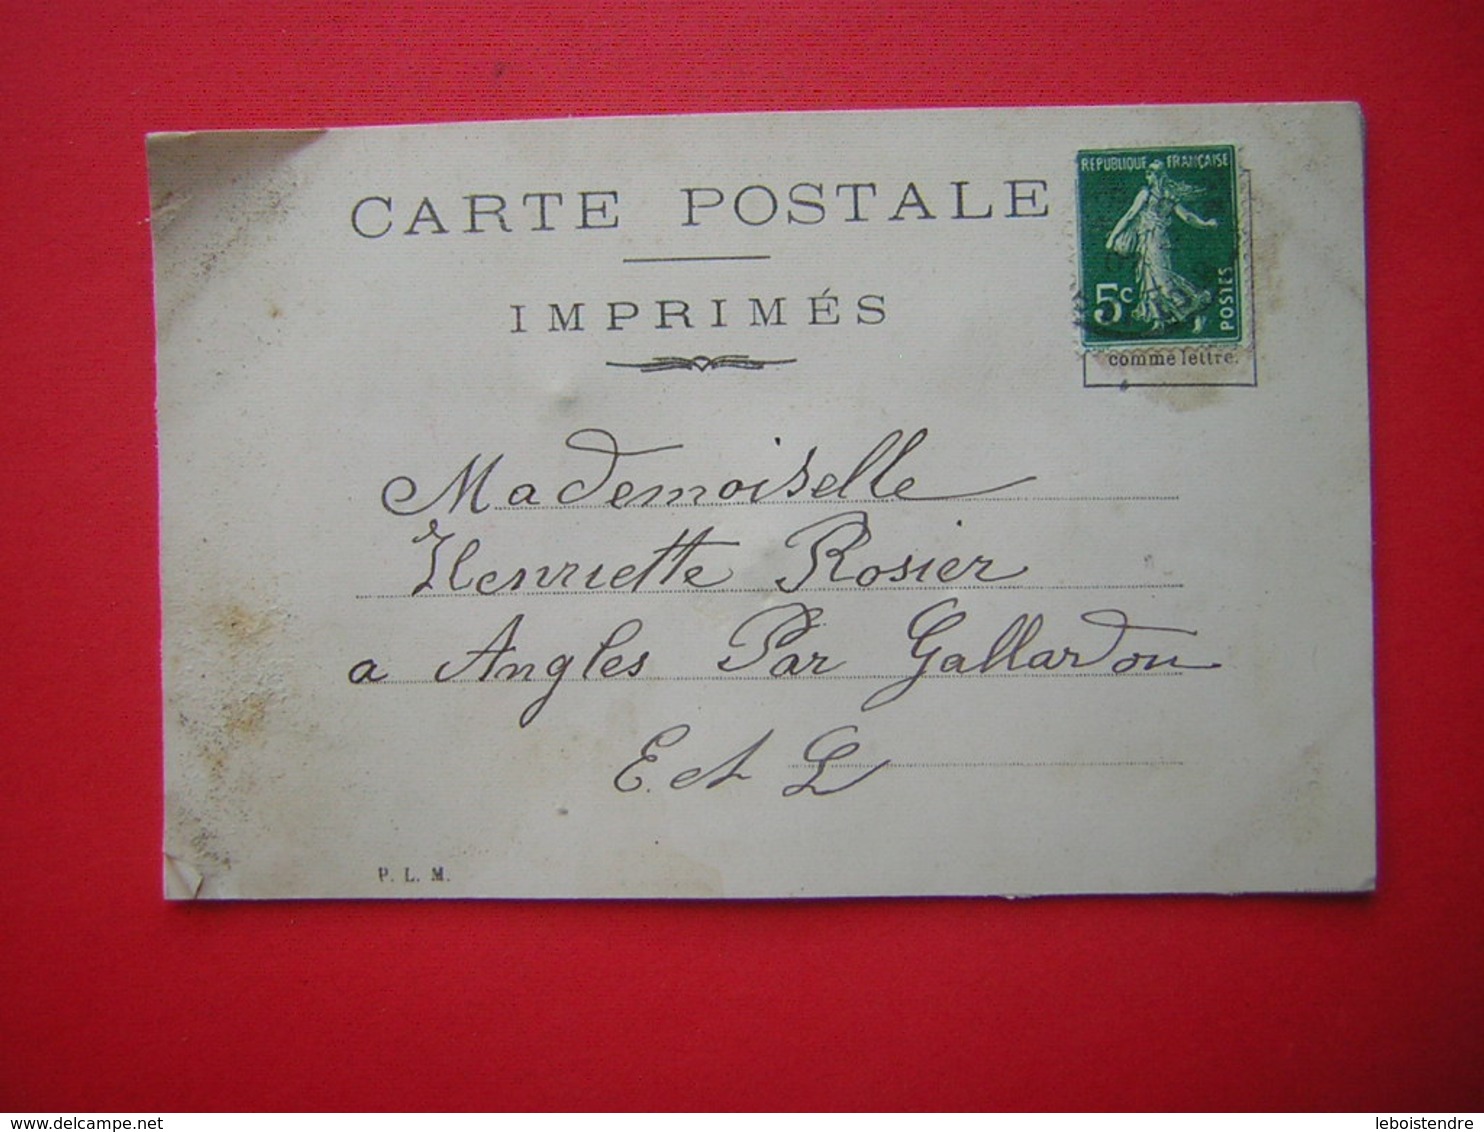 CARTE POSTALE
RÉPUBLIQUE FRANÇAISE
5c
POSTES
IMPRIMÉS
comme lettre.
Mademoiselle
Henriette Rosier
a Angles Par Gallardon
E. et L
P. L. M.
delcampe.net
leboistendre